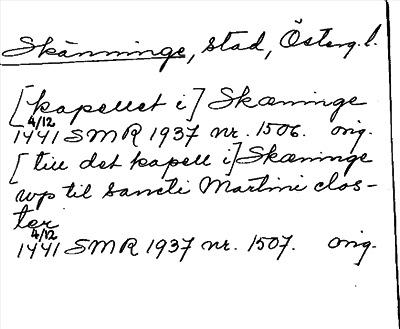 Skänninge, stad, Österg.l.
[kapellet i] Skæninge
4/12
1441 SMR 1937 nr. 1506. orig.
[till det kapell i] Skæninge
wp til sancti Martini clos-
ter
4/12
1441 SMR 1937 nr. 1507. orig.